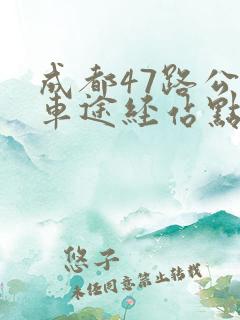 成都47路公
車途経佔點
悠子
未经同意禁止转载